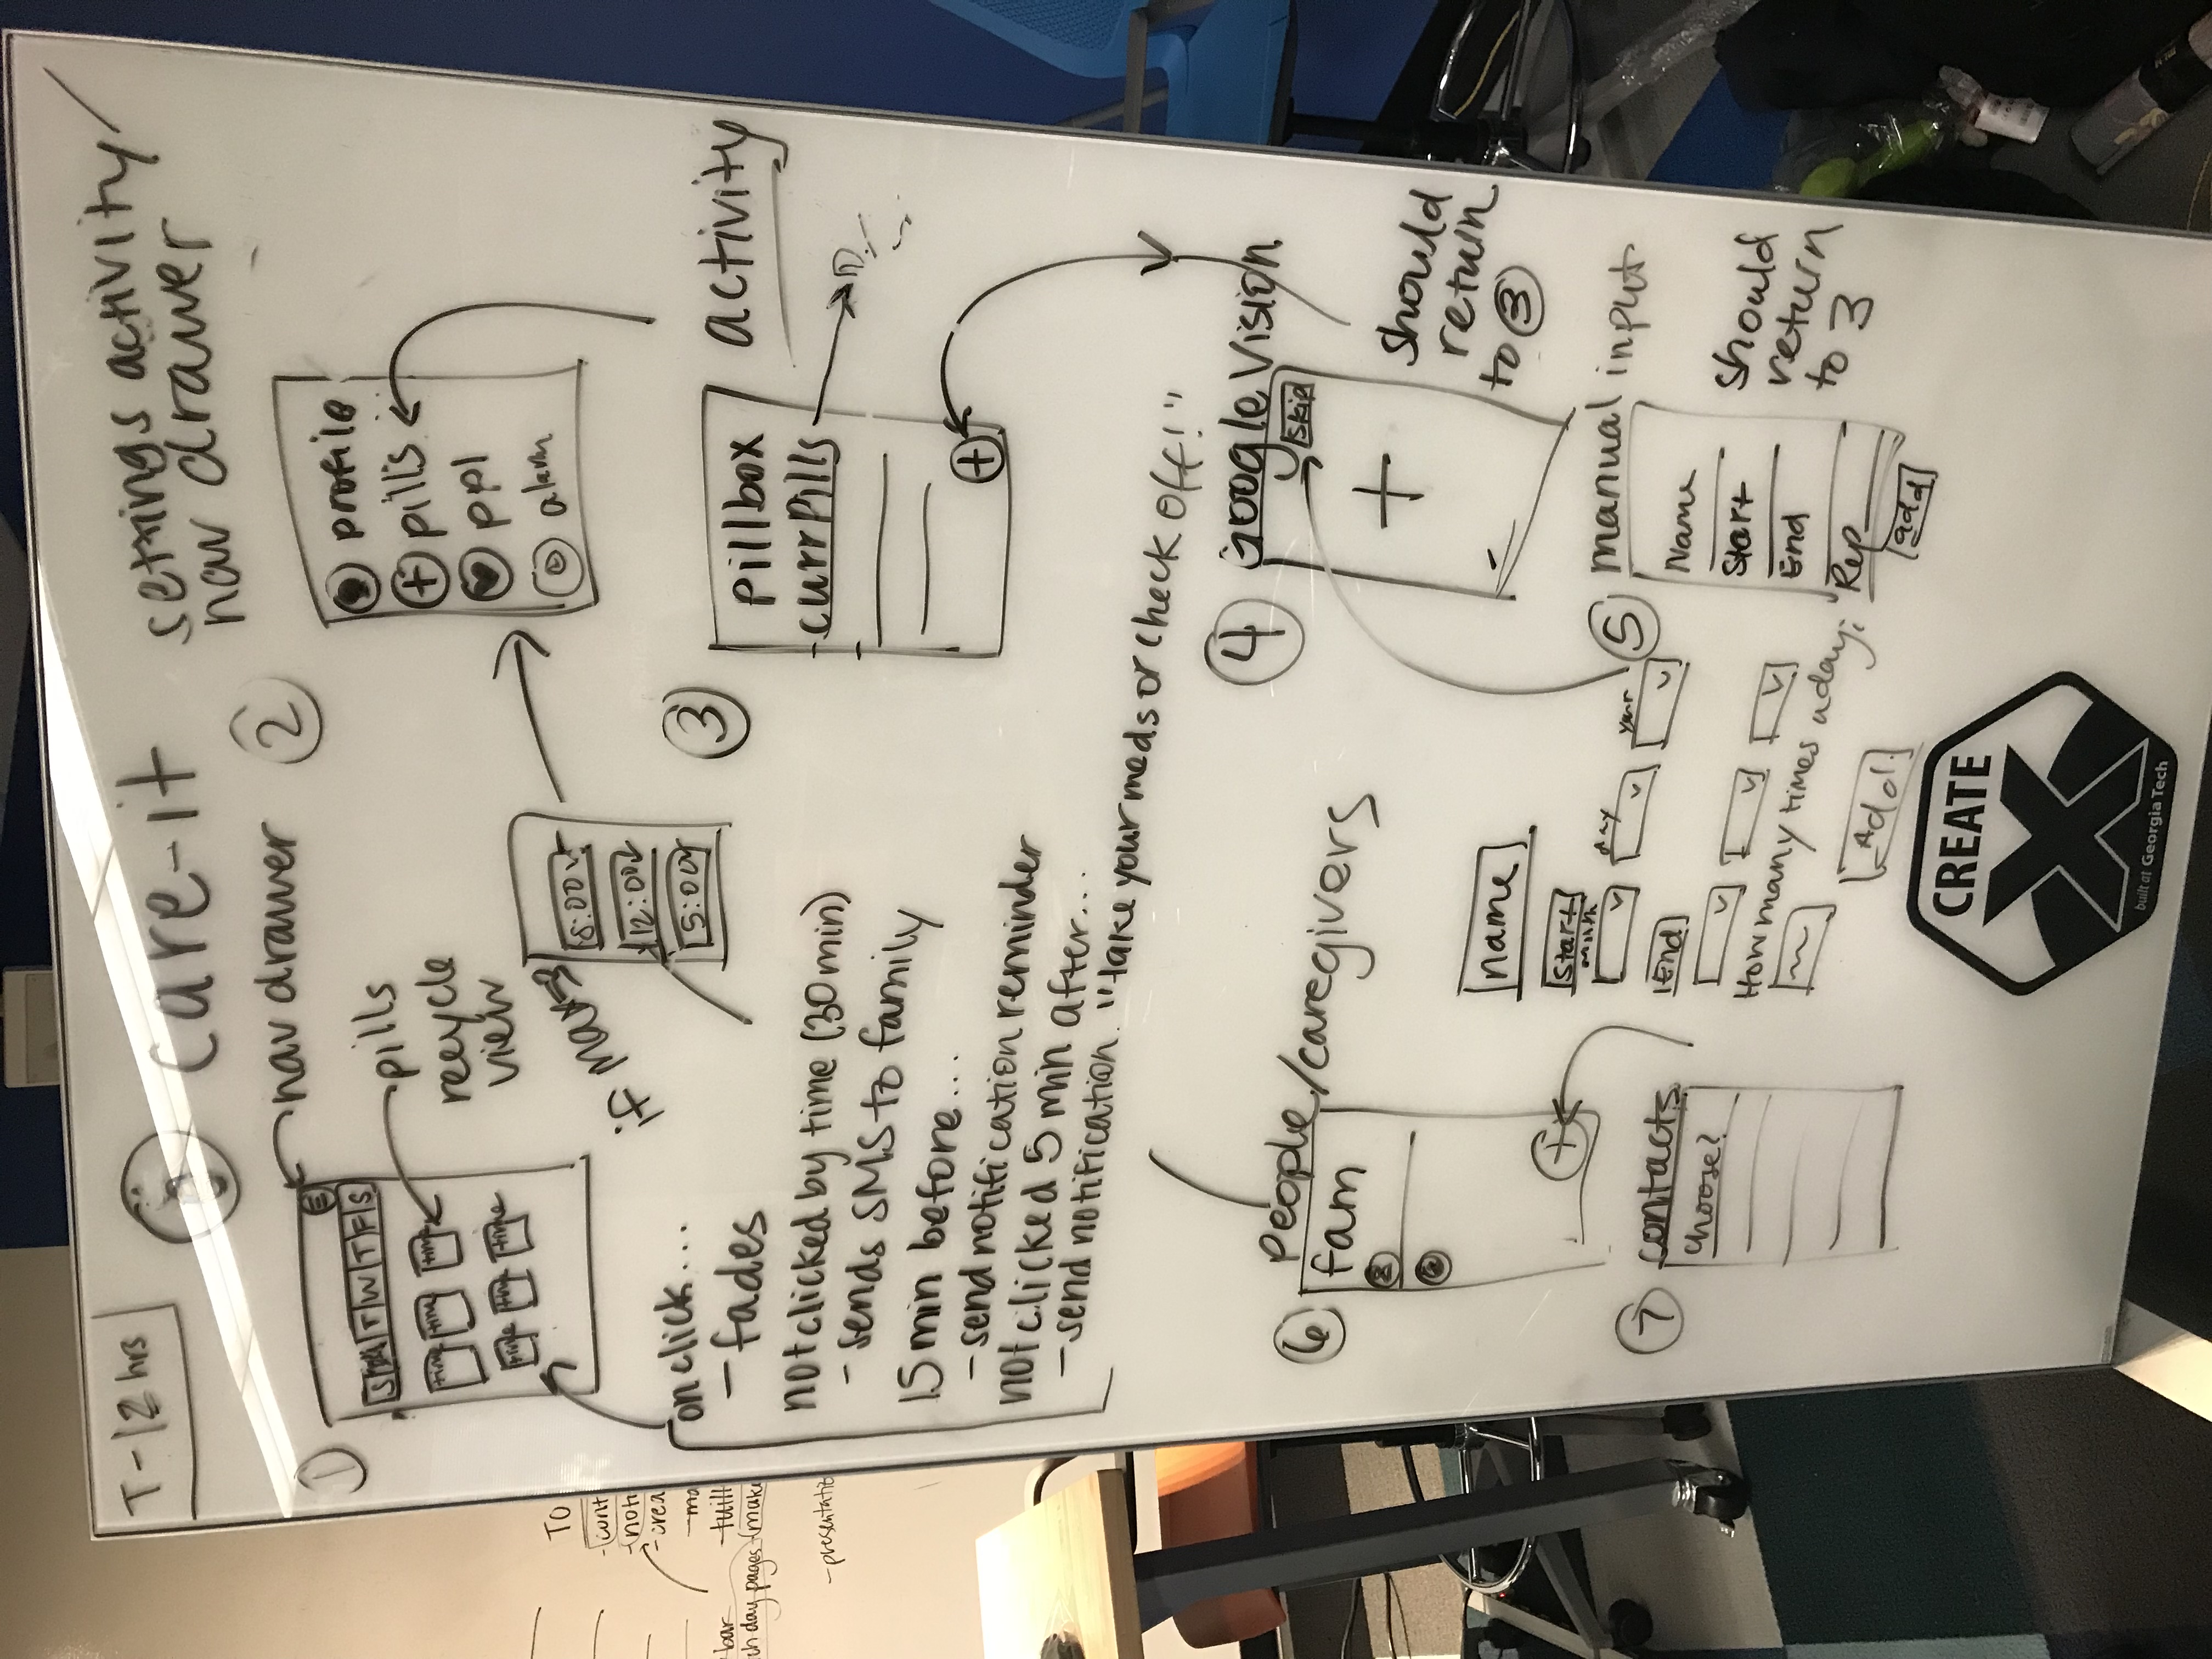 T-12 hrs
care-it
settings activity/
nav drawer
①
nav drawer
S M T W T F S
time time time
time time time
pills
recycle
view
if
8:00
12:00
5:00
②
profile
pills
ppl
alarm
on click...
- fades
not clicked by time (30 min)
- sends SMS to family
15 min before...
- send notification reminder
not clicked 5 min after...
- send notification. "take your meds or check off!"
③
activity
Pillbox
currPills
④
Google Vision
Skip
should
return
to ③
⑤
manual input
Name
Start
End
Rep
add
should
return
to 3
name
Start
day
year
End
How many times a day:
Add!
⑥
People/caregivers
fam
⑦
contacts
choose?
CREATE
X
built at Georgia Tech
TO
- presentati